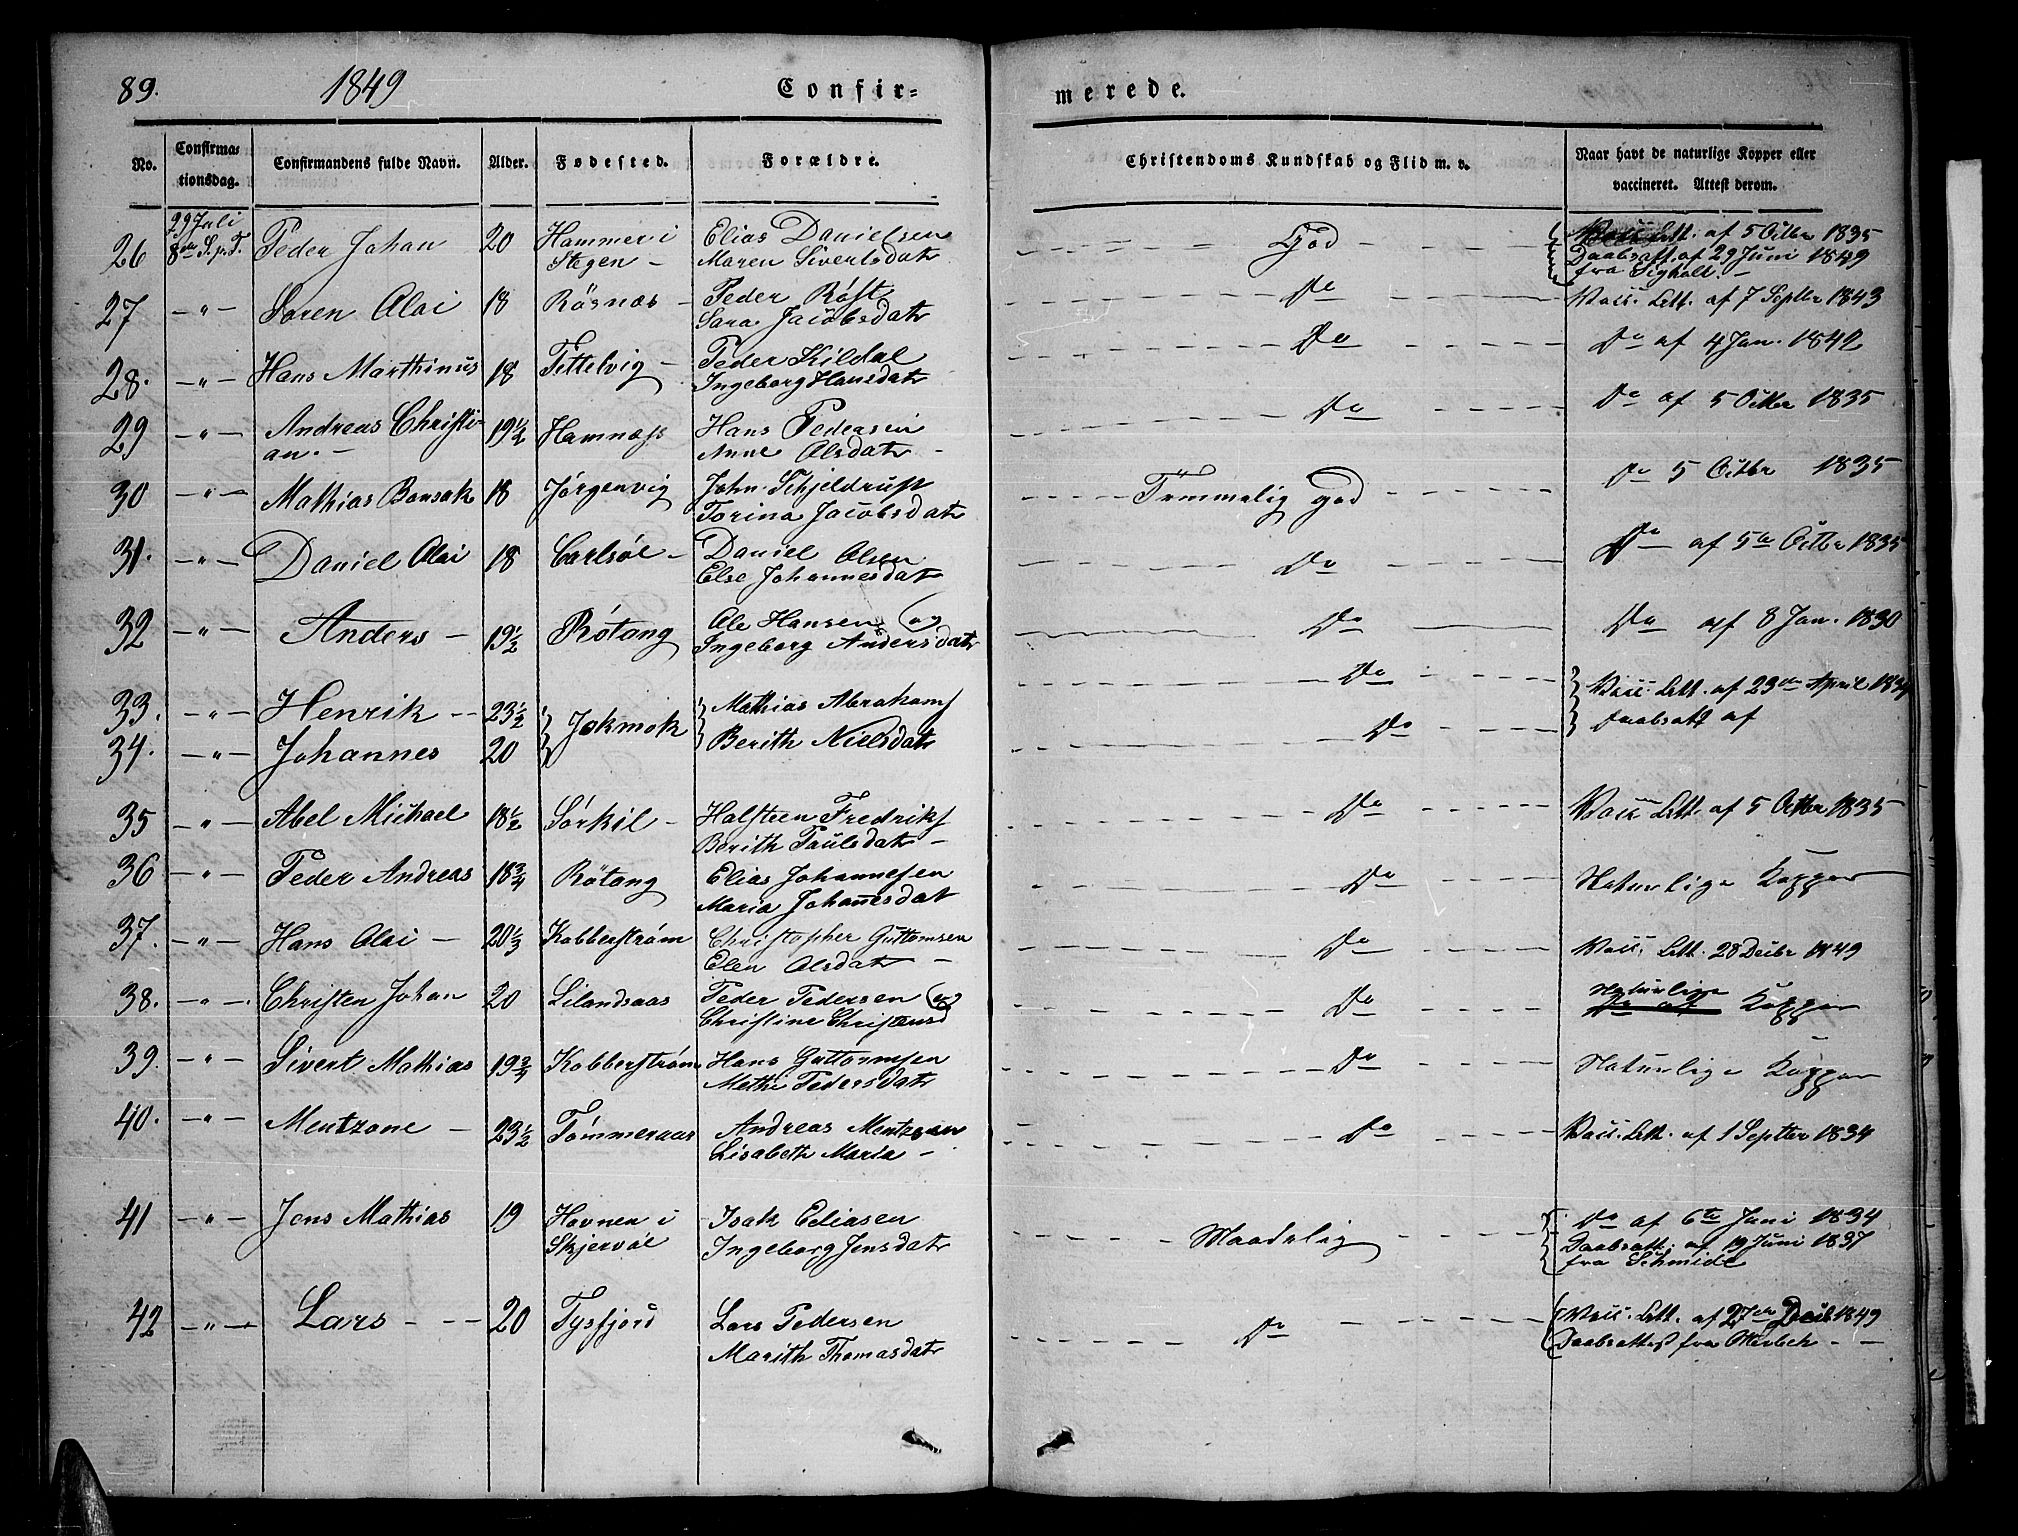 89. 1849 Confir- merede.
No. Confirma- tionsdag. Confirmandens fulde Navn. Alder. Fødested. Forældre. Christendoms Kundskab og Flid m. v. Naar havt de naturlige Kopper eller vaccineret. Attest derom.
29 Juli
26 8de S. p. T. Peder Johan 20 Hammer i Stegen - Elias Danielsen Maren Sivertsdatr God Vacc. Att. af 5 Octbr 1835
Daabsatt. af 29 Juni 1849
fra
27 -"- Søren Olai 18 Rösnæs - Peder Röst Sara Jacobsdatr Do Vacc. Att. af 7 Septbr 1843
28. -"- Hans Marthinus 18 Tittelvig - Peder Kildal Ingeborg Hansdatr Do Do af 4 Jan. 1842
29 -"- Andreas Christi- an. - 19½ Hamnæss Hans Pedersen Anne Olsdatr - Do Do af 5 Octbr 1835
30 -"- Mathias Bonsak 18 Jørgenvig John Schjeldrup Torina Jacobsdatr Temmelig god Do 5 Octbr 1835
31. -"- Daniel Olai 18 Carlsöe - Daniel Olsen Else Johannesdatr Do Do af 5te Octbr 1835
32 -"- Anders - 19½ Rötang Ole Hansen og Ingeborg Andersdatr Do Do af 8 Jan. 1830
33. -"- Henrik -- 23½ Jokmok Mathias Abrahams Do Vacc. Att. af 23de April 1834
34. -"- Johannes 20 Berith Nielsdatr Do Daabsatt af
35 -"- Abel Michael 18½ Sørkil - Halsteen Fredriks Berith Paulsdatr - Do Vacc Att. af 5 Octbr 1835
36 -"- Peder Andreas 18¾ Rötang Elias Johannesen Maria Johannesdat Do Naturlige Kopper
37. -"- Hans Olai - 20⅓ Kobberstrøm Christopher Guttomsen Elen Olsdatr - Do Vacc. Att. 28 Decbr 1849
38. -"- Christen Johan 20 Lilandsaas Peder Pedersen og Christine Christensd Do Naturlige Do af Kopper
39. -"- Sivert Mathias 19¾ Kobberstrøm Hans Guttormsen Methe Pedersdatr Do Naturlige Kopper
40. -"- Mentzone - 23½ Tømmeraas Andreas Mentzsen Lisabeth Maria - Do Vacc. Att. af 1 Septbr 1834
41 -"- Jens Mathias 19 Havnen i Skjervöe Isak Eliasen Ingeborg Jensdatr Maadelig Do af 6te Juni 1834
Daabsatt. af 19 Juni 1837
fra Schmidt
42 -"- Lars - -- 20 Tysfjord Lars Pedersen Marith Thomasdatr Do Vacc. Att. af 27de Decb 1849
Daabsattest fra --